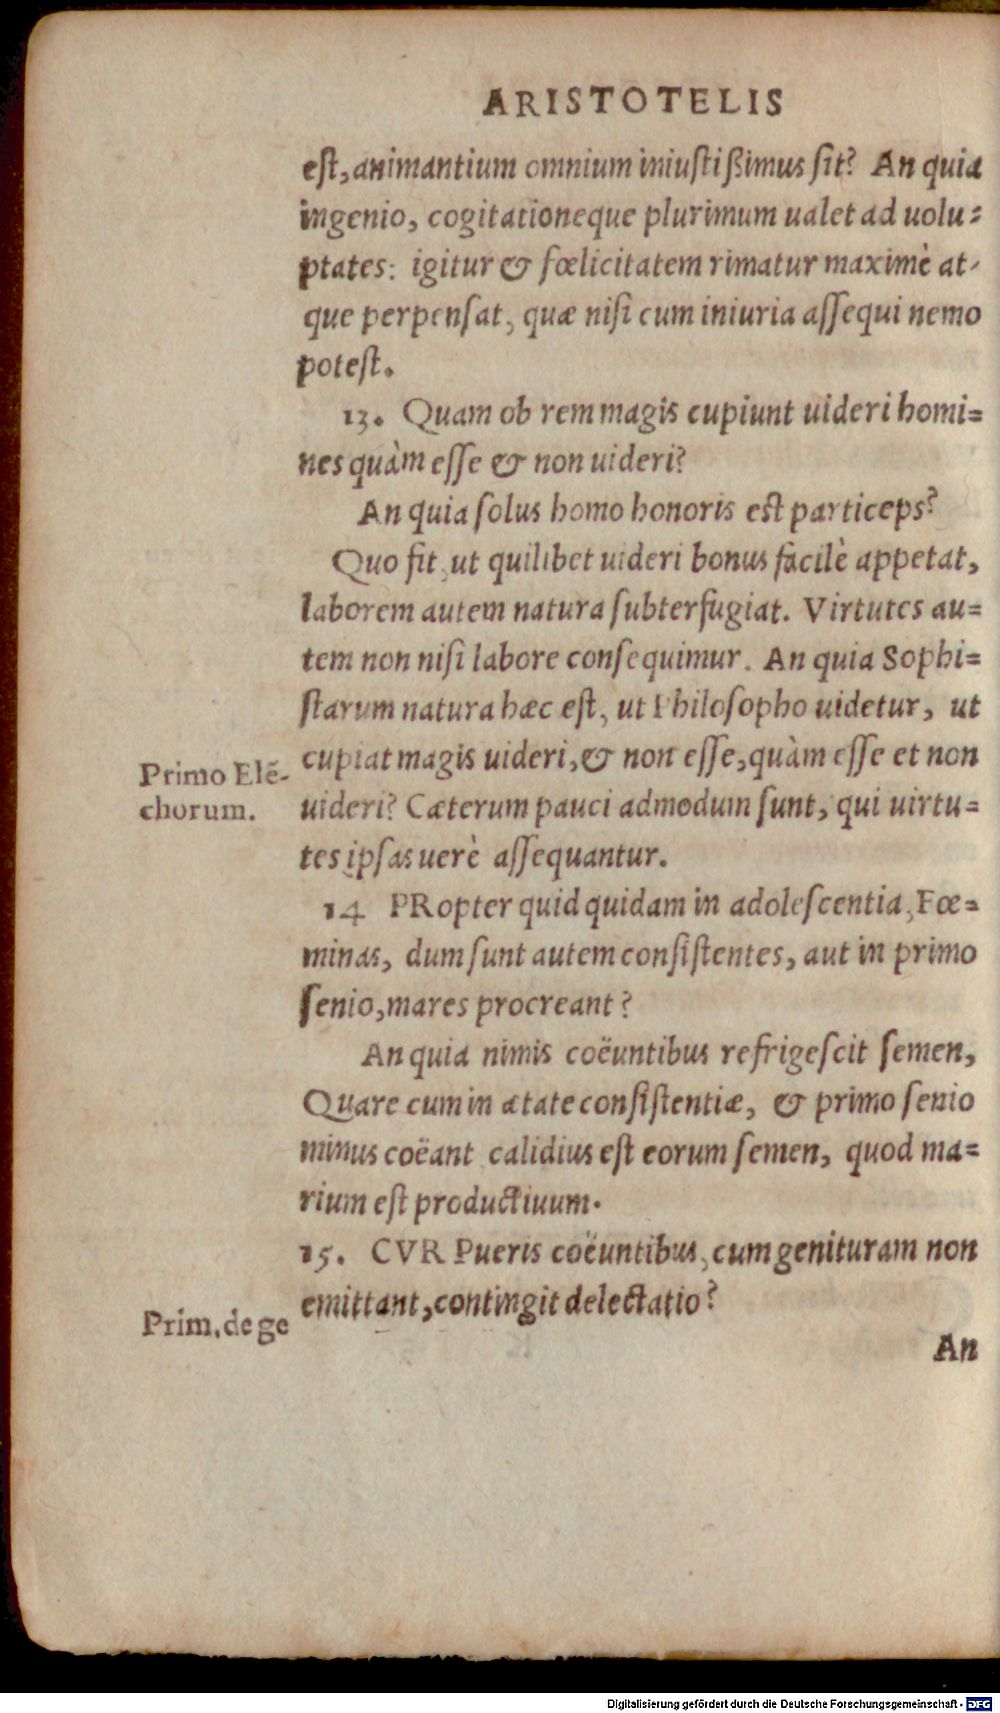 ARISTOTELIS
est, animantium omnium iniustißimus sit? An quia
ingenio, cogitationeque plurimum ualet ad uolu=
ptates: igitur & fœlicitatem rimatur maximè at-
que perpensat, quæ nisi cum iniuria assequi nemo
potest.
13. Quam ob rem magis cupiunt uideri homi=
nes quàm esse & non uideri?
An quia solus homo honoris est particeps?
Quo fit, ut quilibet uideri bonus facilè appetat,
laborem autem natura subterfugiat. Virtutes au=
tem non nisi labore consequimur. An quia Sophi=
starum natura hæc est, ut Philosopho uidetur, ut
cupiat magis uideri, & non esse, quàm esse et non
Primo Elē-
chorum.
uideri? Cæterum pauci admodum sunt, qui uirtu=
tes ipsas uerè assequantur.
14 PRopter quid quidam in adolescentia, Fœ=
minas, dum sunt autem consistentes, aut in primo
senio, mares procreant?
An quia nimis coëuntibus refrigescit semen,
Quare cum in ætate consistentiæ, & primo senio
minus coëant calidius est eorum semen, quod ma=
rium est productiuum.
15. CVR Pueris coëuntibus, cum genituram non
emittant, contingit delectatio?
Prim. de ge
An
Digitalisierung gefördert durch die Deutsche Forschungsgemeinschaft - DFG